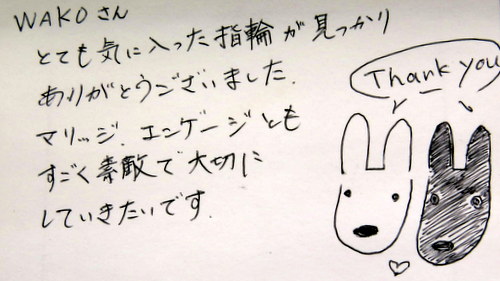 WAKOさん
とても気に入った指輪が見つかり
ありがとうございました.
マリッジ.エンゲージとも
すごく素敵で大切に
していきたいです.
Thank you